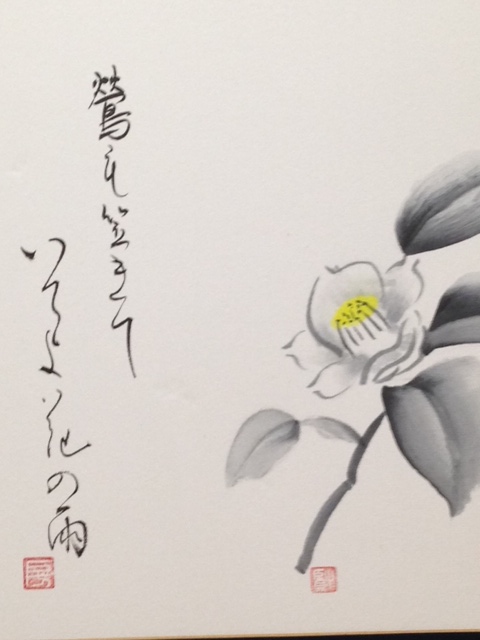 鶯も笠きて
いでよ花の雨